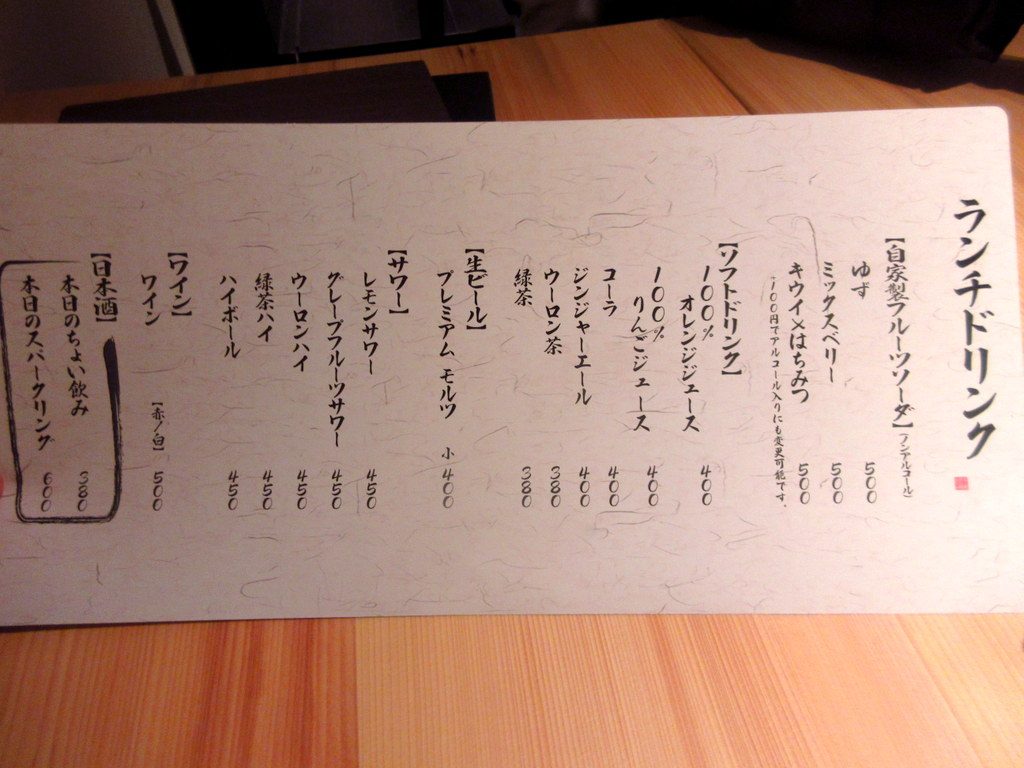 ランチドリンク
【自家製フルーツソーダ】(ノンアルコール)
ゆず 500
ミックスベリー 500
キウイ×はちみつ 500
+100円でアルコール入りにも変更可能です。
【ソフトドリンク】
100%オレンジジュース 400
100%りんごジュース 400
コーラ 400
ジンジャーエール 400
ウーロン茶 380
緑茶 380
【生ビール】
プレミアムモルツ 小 400
【サワー】
レモンサワー 450
グレープフルーツサワー 450
ウーロンハイ 450
緑茶ハイ 450
ハイボール 450
【ワイン】
ワイン 【赤/白】 500
【日本酒】
本日のちょい飲み 380
本日のスパークリング 600